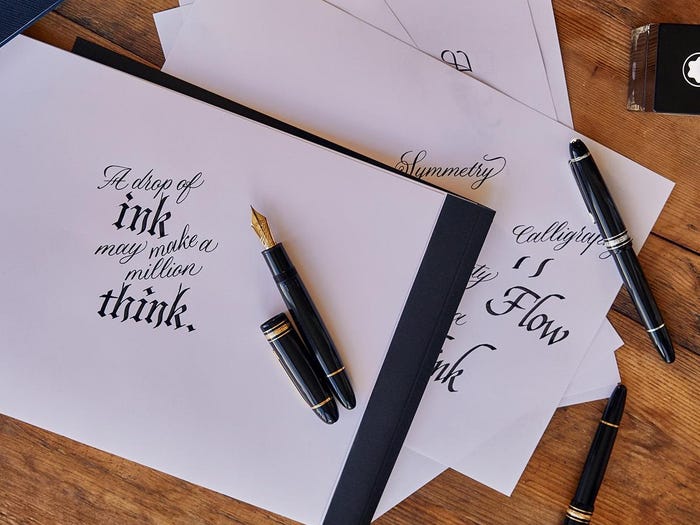 A drop of
ink
may make a
million
think.
B
Symmetry
Calligraphy
Flow